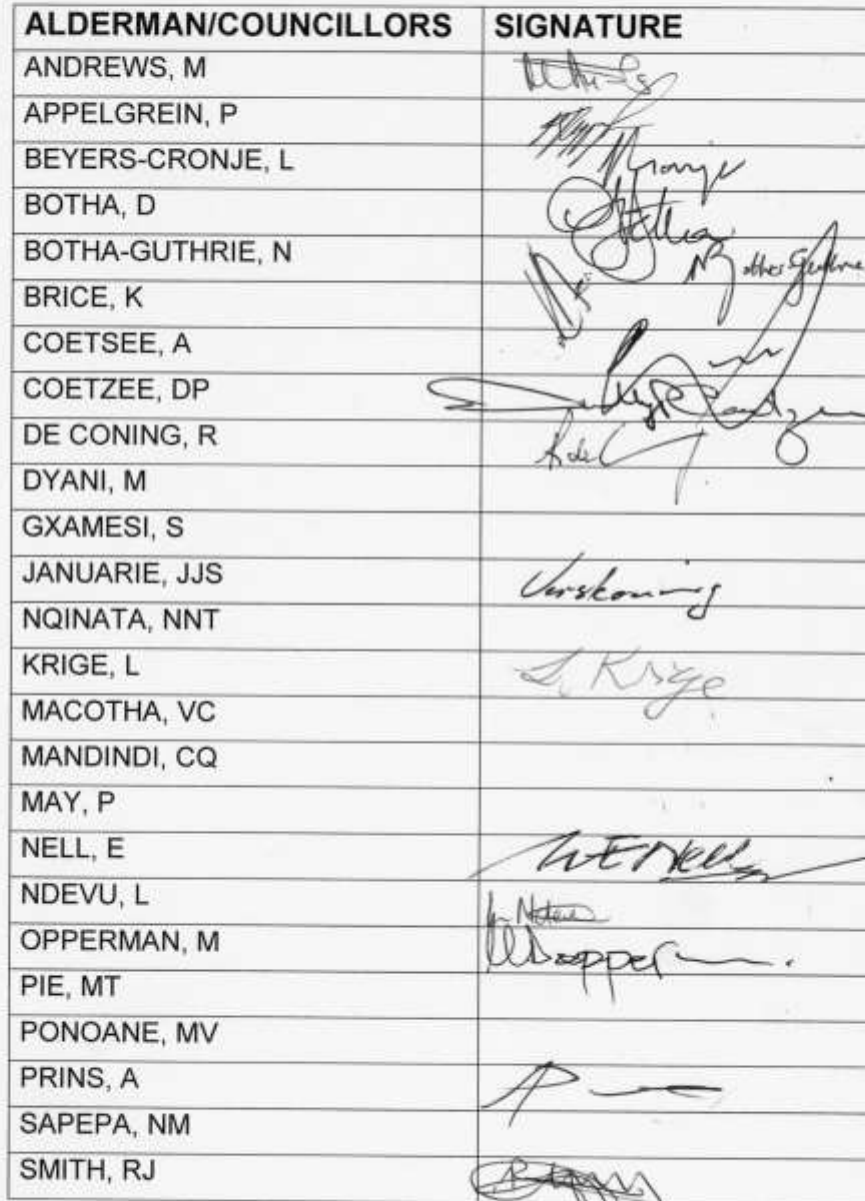 ALDERMAN/COUNCILLORS SIGNATURE
ANDREWS, M
APPELGREIN, P
BEYERS-CRONJE, L
BOTHA, D
BOTHA-GUTHRIE, N
BRICE, K
COETSEE, A
COETZEE, DP
DE CONING, R
DYANI, M
GXAMESI, S
JANUARIE, JJS Verskoning
NQINATA, NNT
KRIGE, L L. Krige
MACOTHA, VC
MANDINDI, CQ
MAY, P
NELL, E
NDEVU, L
OPPERMAN, M
PIE, MT
PONOANE, MV
PRINS, A
SAPEPA, NM
SMITH, RJ